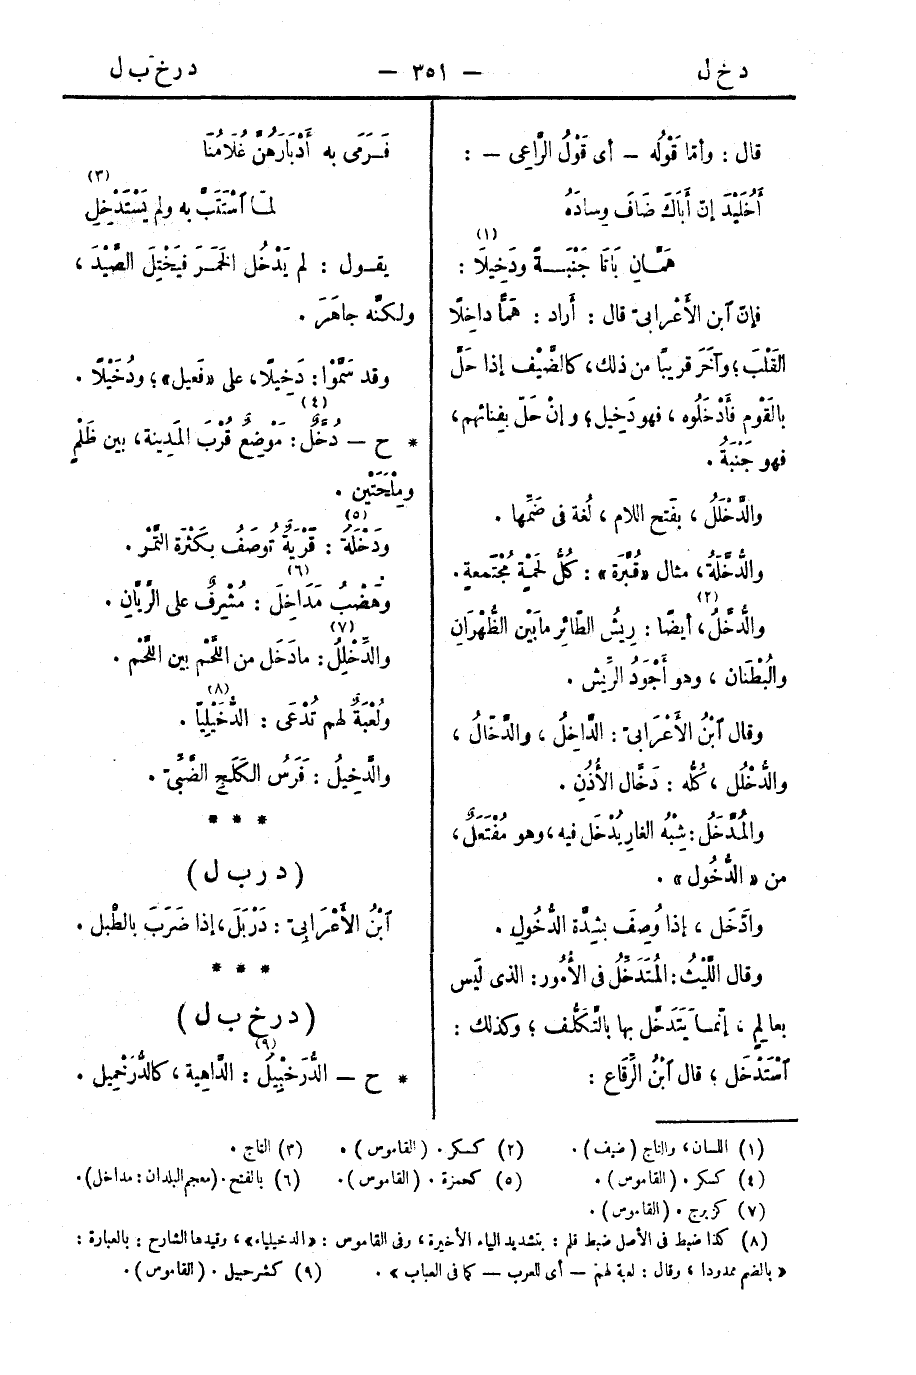 د خ ل
— ٣٥١ —
د ر خ ب ل
قال : وأمّا قَوْلُه — أى قَوْلُ الرَّاعِى — :
أَخُلَيْدَ إنّ أَبَاكَ ضَافَ وِسادَهُ
هَمَّـانِ بَاتَا جَنْبَـــةً ودَخِيلَا (١) :
فإنّ ٱبن الأَعْرابىّ قال : أَراد : هَمًّا داخِلًا
القَلْبَ ؛ وآخَرَ قريبًا من ذلك، كالضَّيْف إذا حَلَّ
بالقَوْم فأَدْخَلُوه ، فهو دَخِيل ؛ وإنْ حَلّ بِفِنائهم ،
فهو جَنْبَةٌ .
والدُّخْلَلُ ، بفَتح اللام ، لُغة فى ضَمِّها .
والدُّخَّلَةُ، مثال «قُبَّرَة» : كُلُّ لَحْمَةٍ مُجْتَمِعةٍ.
والدُّخَّلُ (٢)، أيضًا : رِيشُ الطّائرِ مابَيْن الظُّهْرَانِ
والبُطْنَان ، وهو أَجْوَدُ الرِّيش .
وقال ٱبْنُ الأَعْرَابىّ : الدَّاخِلُ ، والدَّخّالُ ،
والدُّخْلُل ، كُلُّه : دَخَّال الأُذُنِ .
والمُدَّخَلُ : شِبْهُ الغارِ يُدْخَل فيه ، وهو مُفْتَعَلٌ ،
من « الدُّخُول » .
وٱدَّخَل ، إذا وُصِفَ بشِدَّة الدُّخُولِ .
وقال اللَّيْثُ : المُتَدَخِّلُ فى الأُمُور : الذى لَيْس
بعالِمٍ ، إنّمـا يَتَدَخَّل بها بالتَّكَلُّف ؛ وكذلك :
ٱسْتَدْخَل ؛ قال ٱبْنُ الرِّقَاع :
فَـرَمَى به أَدْبَارَهُنّ غُلَامُنَا
لمّا ٱسْتُتِبَّ به ولم يَسْتَدْخِلِ (٣)
يقـول : لم يَدْخُل الخَمَـرَ فيَخْتِلَ الصَّيْدَ ،
ولكنَّه جاهَرَ .
وقد سَمَّوْا : دَخِيلًا، على «فَعِيل» ؛ ودُخَيْلًا .
* ح — دُخَّلٌ (٤) : مَوْضِعٌ قُرْبَ المَدِينة ، بين ظَلْمٍ
ومِلْحَتَيْن .
ودَخْلَةُ (٥) : قَرْيَةٌ تُوصَفُ بكَثْرَة التَّمْر .
وهَضْبُ مَدَاخِلَ (٦) : مُشْرِفٌ على الرَّيَّانِ .
والدِّخْلِلُ (٧) : مادَخَل من اللَّحْم بين اللَّحْم .
ولُعْبَةٌ لهم تُدْعَى : الدُّخَيْلِيَّا (٨) .
والدَّخِيلُ : فَرَسُ الكَلَجِ الضَّبِّىّ .
* * *
( د ر ب ل )
ٱبْنُ الأَعْرَابِىّ : دَرْبَلَ ، إذا ضَرَبَ بالطَّبل .
* * *
( د ر خ ب ل )
* ح — الدُّرَخْبِيلُ (٩) : الدَّاهية ، كالدُّرَخْمِيل .
(١) اللسان ، والتاج (ضيف) . (٢) كسكر . (القاموس) . (٣) التاج .
(٤) كسكر . (القاموس) . (٥) كحمزة . (القاموس) . (٦) بالفتح . (معجم البلدان : مداخل) .
(٧) كزبرج . (القاموس) .
(٨) كذا ضبط فى الأصل ضبط قلم : بتشديد الياء الأخيرة ، وفى القاموس : «الدخيلياء» ، وقيدها الشارح : بالعبارة :
« بالضم ممدودا ، وقال : لعبة لهم — أى للعرب — كما فى العباب » . (٩) كشرحبيل . (القاموس) .